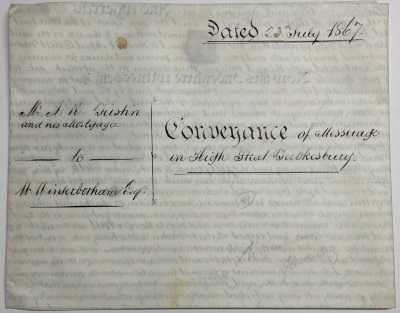 Dated 23rd July 1867.
Mr A R Tristin
and his Mortgagee
to
W. Winterbotham Esqr.
Conveyance of Messuage
in High Street Tewkesbury.